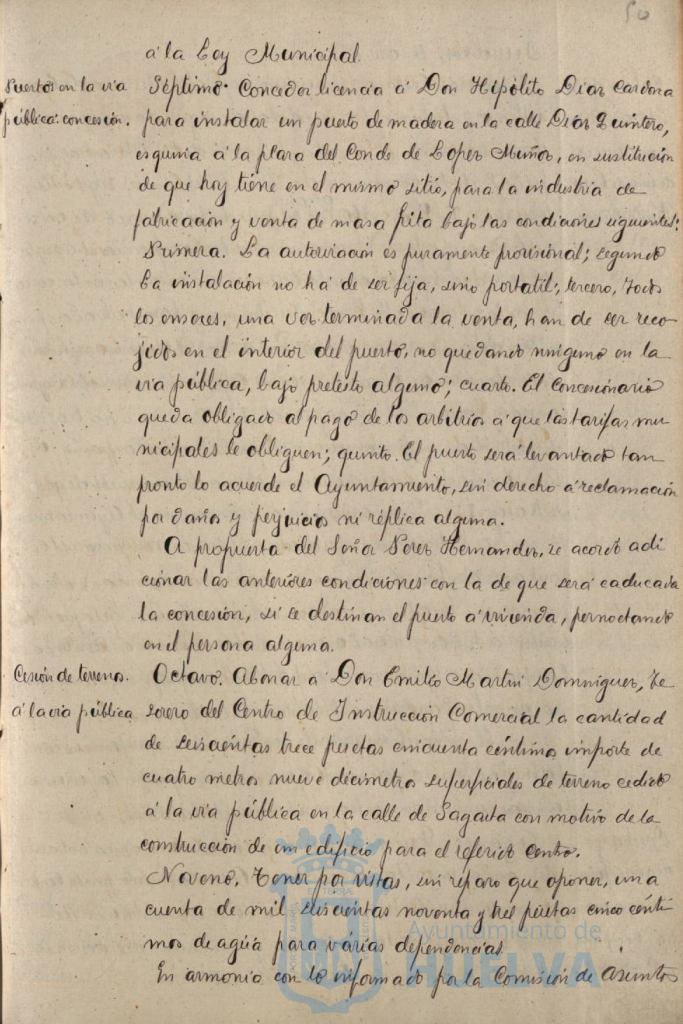 50
á la Ley Municipal.
Puestos en la via
pública: concesión.
Séptimo. Conceder licencia á Don Hipólito Diaz Cardona
para instalar un puesto de madera en la calle Diaz Quintero,
esquina á la plaza del Conde de Lopez Muñoz, en sustitución
de que hoy tiene en el mismo sitio, para la industria de
fabricación y venta de masa frita bajo las condiciones siguientes:
Primera. La autorización es puramente provisional; segundo
La instalación no há de ser fija, sino portatil; tercero, Todos
los enseres, una vez terminada la venta, han de ser reco-
jidos en el interior del puesto, no quedando ninguno en la
via pública, bajo pretesto alguno; cuarto. El concesionario
queda obligado al pago de los arbitrios á que las tarifas mu
nicipales le obliguen; quinto. El puesto será levantado tan
pronto lo acuerde el Ayuntamiento, sin derecho á reclamación
por daños y perjuicios ni réplica alguna.
A propuesta del Señor Perez Hernandez, se acordó adi
cionar las anteriores condiciones con la de que será caducada
la concesión, si se destinan el puesto á vivienda, pernoctando
en el persona alguna.
Cesión de terrenos
á la via pública
Octavo. Abonar á Don Emilio Martin Dominguez, Te
sorero del Centro de Instrucción Comercial la cantidad
de seiscientas trece pesetas cincuenta céntimos importe de
cuatro metros nueve décimetros superficiales de terreno cedido
á la via pública en la calle de Sagasta con motivo de la
construcción de un edificio para el referido Centro.
Noveno. Tener por vistas, sin réparo que oponer, una
cuenta de mil seiscientas noventa y tres pesetas cinco cénti
mos de agua para várias dependencias.
En armonia con lo informado por la Comisión de Asuntos
Ayuntamiento de
HUELVA